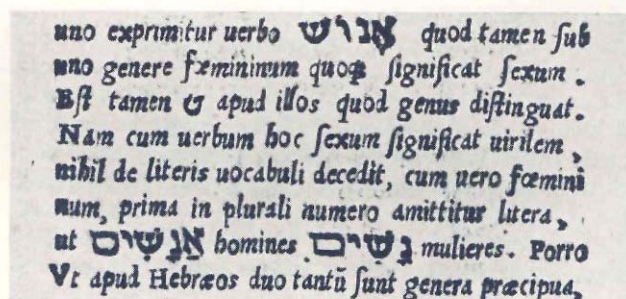 uno exprimitur uerbo אֱנוֹשׁ quod tamen ſub
uno genere fæmininum quoqꝫ ſignificat ſexum .
Eſt tamen & apud illos quod genus diſtinguat.
Nam cum uerbum hoc ſexum ſignificat uirilem ,
nihil de literis uocabuli decedit, cum uero fœmini
num, prima in plurali numero amittitur litera ,
ut אֲנָשִׁים homines נָשִׁים mulieres . Porro
Vt apud Hebræos duo tantũ ſunt genera præcipua,